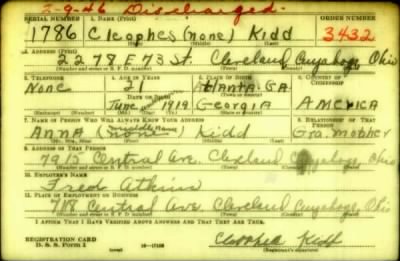 2-9-46 Discharged.
SERIAL NUMBER 1. NAME (Print) ORDER NUMBER
1786 Cleophes (none) Kidd 3432
(First) (Middle) (Last)
2. ADDRESS (Print)
2278 E 73 St. Cleveland Cuyahoga Ohio
(Number and street or R. F. D. number) (Town) (County) (State)
3. TELEPHONE 4. AGE IN YEARS 5. PLACE OF BIRTH 6. COUNTRY OF CITIZENSHIP
None 21 Atlanta. GA
DATE OF BIRTH
June 1919 Georgia AMErica
(Exchange) (Number) (Mo.) (Day) (Yr.) (State or country)
7. NAME OF PERSON WHO WILL ALWAYS KNOW YOUR ADDRESS 8. RELATIONSHIP OF THAT PERSON
Anna (none) Kidd Gra. Mother
(Mr., Mrs., Miss) (First) (Middle) (Last)
9. ADDRESS OF THAT PERSON
7915 Central Ave. Cleveland Cuyahoga Ohio
(Number and street or R. F. D. number) (Town) (County) (State)
10. EMPLOYER'S NAME
Fred Atkins
11. PLACE OF EMPLOYMENT OR BUSINESS
7118 Central Ave. Cleveland Cuyahoga, Ohio
(Number and street or R. F. D. number) (Town) (County) (State)
I AFFIRM THAT I HAVE VERIFIED ABOVE ANSWERS AND THAT THEY ARE TRUE.
REGISTRATION CARD
D. S. S. Form 1 16-17105 Kidd
(Registrant's signature)